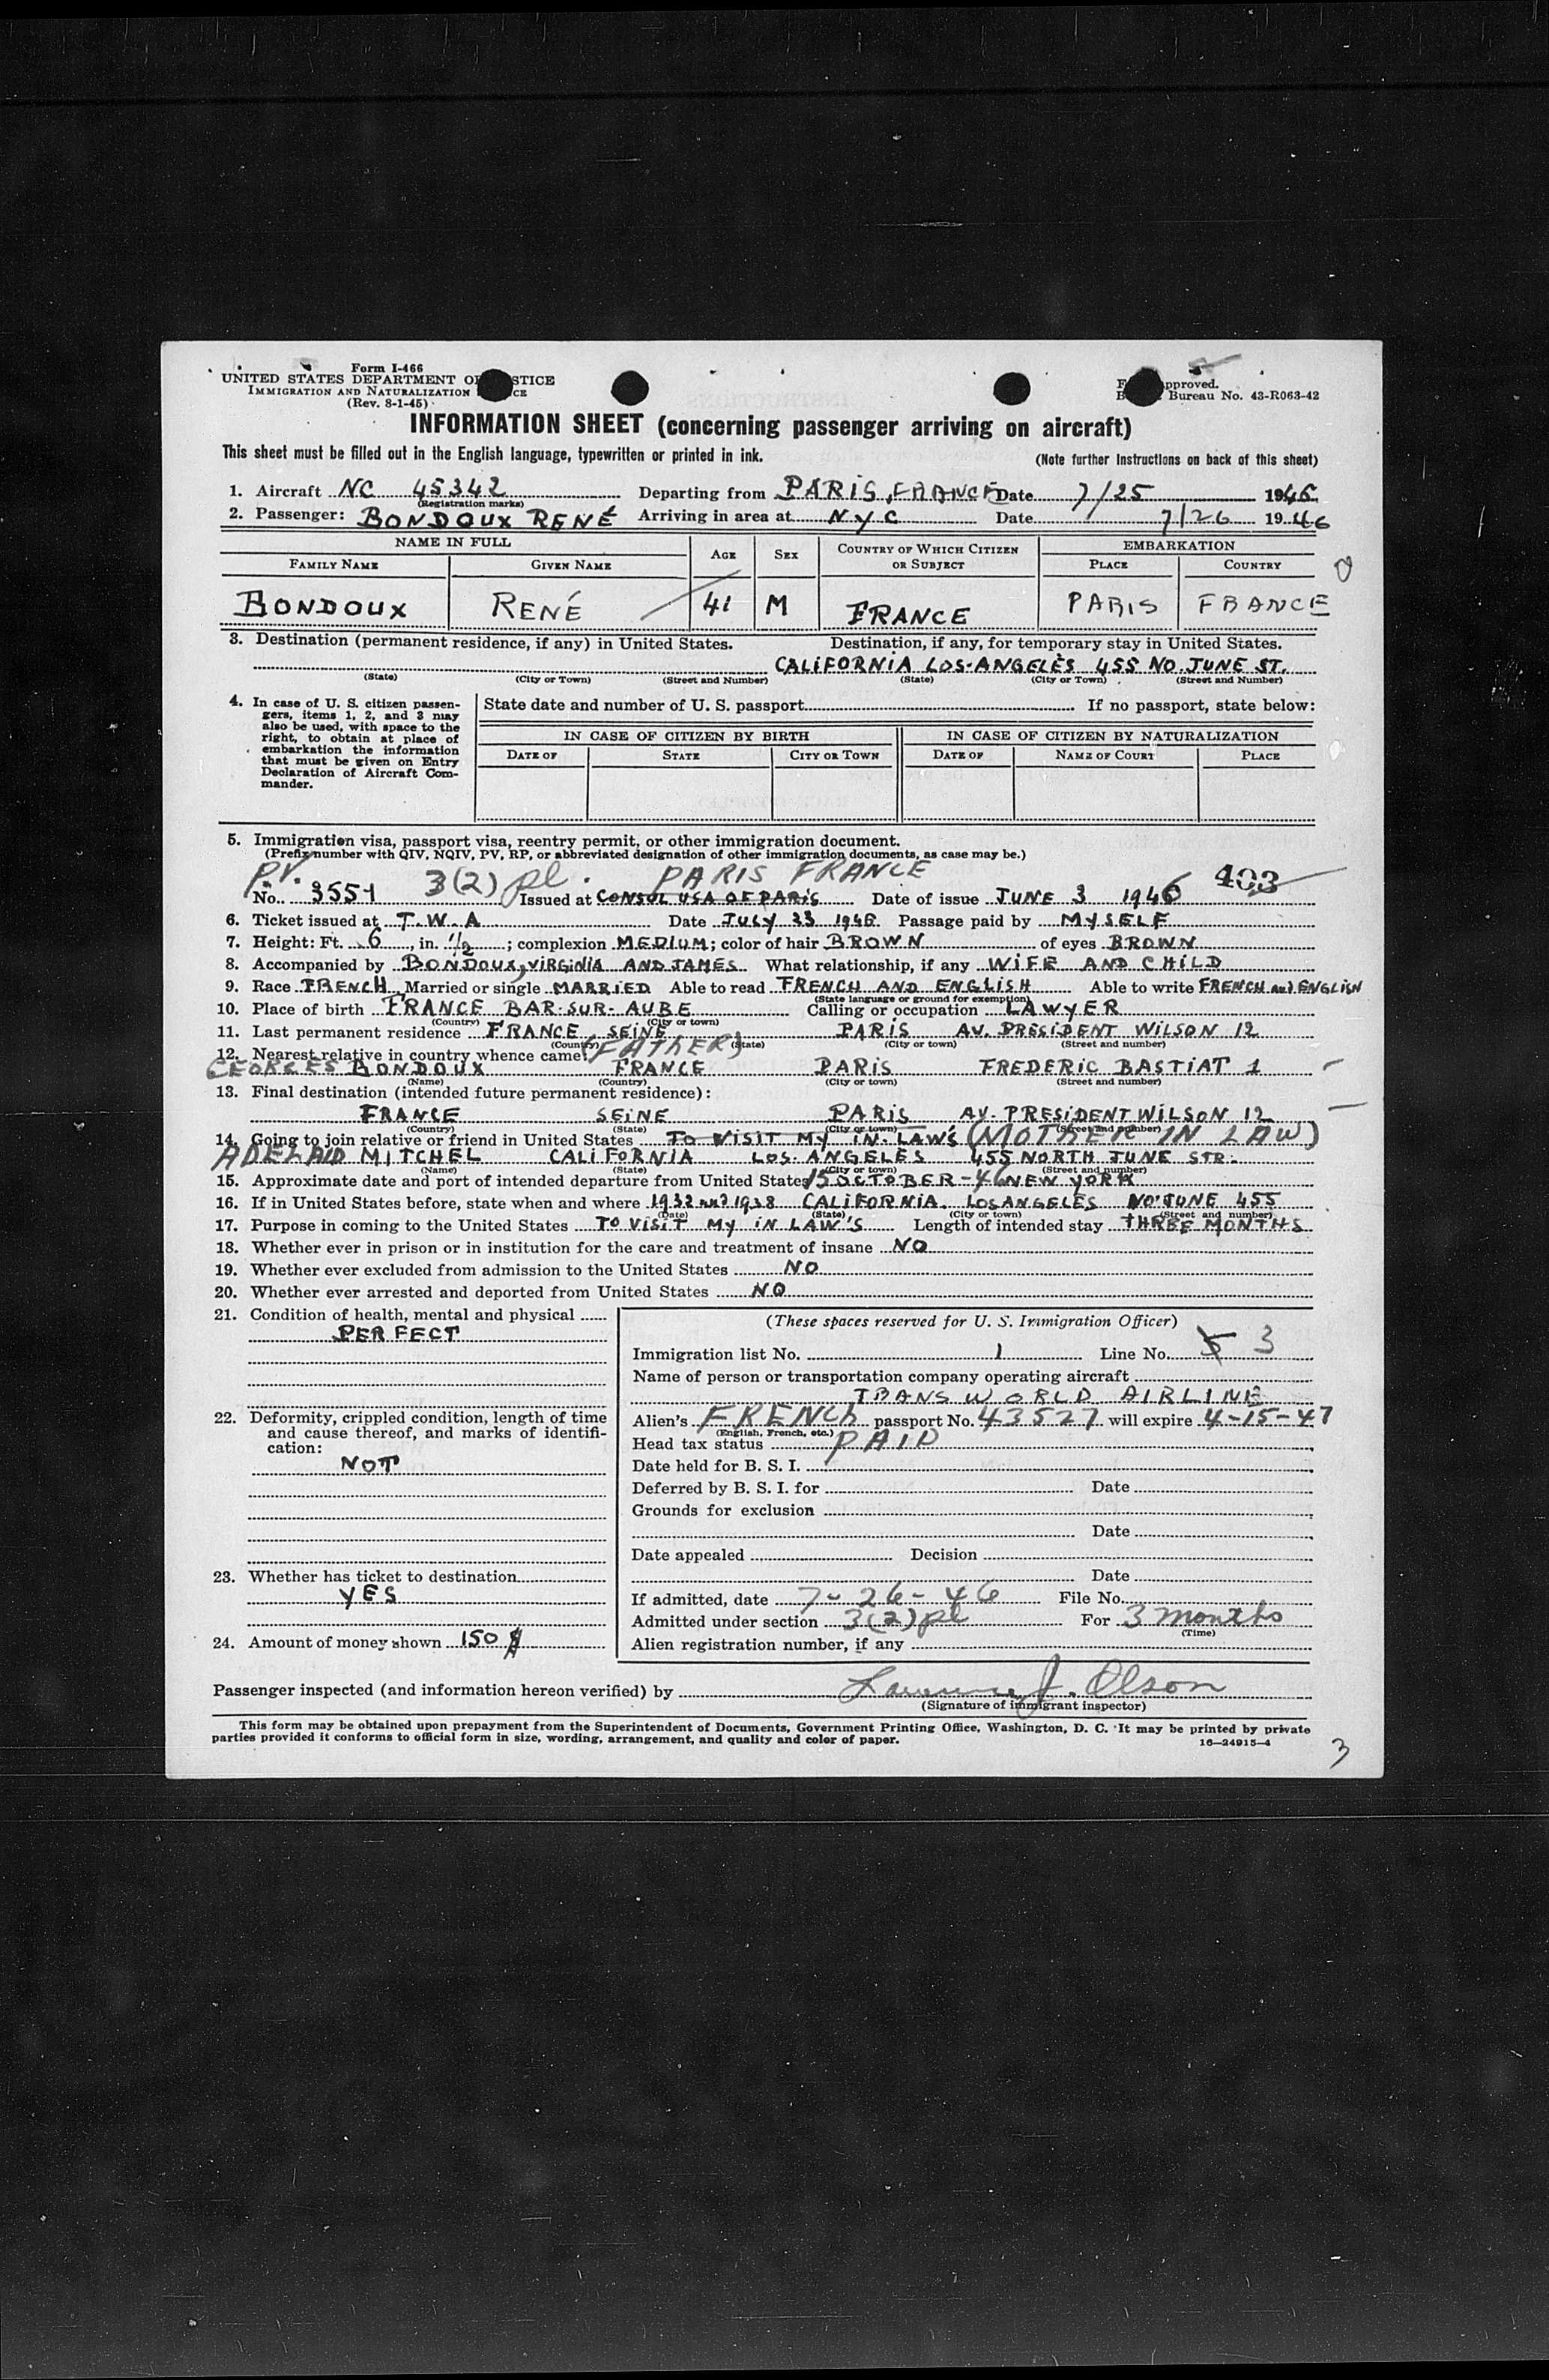 Form I-466
UNITED STATES DEPARTMENT OF JUSTICE
IMMIGRATION AND NATURALIZATION SERVICE
(Rev. 8-1-45)
Form approved.
Bureau No. 43-R063-42
INFORMATION SHEET (concerning passenger arriving on aircraft)
This sheet must be filled out in the English language, typewritten or printed in ink.
(Note further instructions on back of this sheet)
1. Aircraft NC 45342 Departing from PARIS, FRANCE Date 7/25 1946
(Registration marks)
2. Passenger: BONDOUX RENÉ Arriving in area at NYC Date 7/26 1946
NAME IN FULL AGE SEX COUNTRY OF WHICH CITIZEN OR SUBJECT EMBARKATION
FAMILY NAME GIVEN NAME PLACE COUNTRY
BONDOUX RENÉ 41 M FRANCE PARIS FRANCE
3. Destination (permanent residence, if any) in United States. Destination, if any, for temporary stay in United States.
CALIFORNIA LOS-ANGELÈS 455 NO. JUNE ST.
(State) (City or Town) (Street and Number) (State) (City or Town) (Street and Number)
4. In case of U. S. citizen passengers, items 1, 2, and 3 may also be used, with space to the right, to obtain at place of embarkation the information that must be given on Entry Declaration of Aircraft Commander.
State date and number of U. S. passport If no passport, state below:
IN CASE OF CITIZEN BY BIRTH IN CASE OF CITIZEN BY NATURALIZATION
DATE OF STATE CITY OR TOWN DATE OF NAME OF COURT PLACE
5. Immigration visa, passport visa, reentry permit, or other immigration document.
(Prefix number with QIV, NQIV, PV, RP, or abbreviated designation of other immigration documents, as case may be.)
PV. 3(2) pl. PARIS FRANCE 403
No. 3551 Issued at CONSUL USA OF PARIS Date of issue JUNE 3 1946
6. Ticket issued at T.W.A Date JULY 23 1946 Passage paid by MYSELF
7. Height: Ft. 6, in. 1/2; complexion MEDIUM; color of hair BROWN of eyes BROWN
8. Accompanied by BONDOUX, VIRGINIA AND JAMES What relationship, if any WIFE AND CHILD
9. Race FRENCH Married or single MARRIED Able to read FRENCH AND ENGLISH Able to write FRENCH and ENGLISH
(State language or ground for exemption)
10. Place of birth FRANCE BAR-SUR-AUBE Calling or occupation LAWYER
(Country) (City or town)
11. Last permanent residence FRANCE SEINE PARIS AV. PRESIDENT WILSON 12
(Country) (State) (City or town) (Street and number)
12. Nearest relative in country whence came: (FATHER)
GEORGES BONDOUX FRANCE PARIS FREDERIC BASTIAT 1
(Name) (Country) (City or town) (Street and number)
13. Final destination (intended future permanent residence):
FRANCE SEINE PARIS AV. PRESIDENT WILSON 12
(Country) (State) (City or town) (Street and number)
14. Going to join relative or friend in United States TO VISIT MY IN-LAW'S (MOTHER IN LAW)
ADELAID MITCHEL CALIFORNIA LOS-ANGELÈS 455 NORTH JUNE STR.
(Name) (State) (City or town) (Street and number)
15. Approximate date and port of intended departure from United States 15 OCTOBER-46 NEW YORK
16. If in United States before, state when and where 1932 and 1938 CALIFORNIA. LOS ANGELES NO. JUNE 455
(Date) (State) (City or town) (Street and number)
17. Purpose in coming to the United States TO VISIT MY IN LAW'S Length of intended stay THREE MONTHS
18. Whether ever in prison or in institution for the care and treatment of insane NO
19. Whether ever excluded from admission to the United States NO
20. Whether ever arrested and deported from United States NO
21. Condition of health, mental and physical
PERFECT
22. Deformity, crippled condition, length of time and cause thereof, and marks of identification:
NOT
23. Whether has ticket to destination
YES
24. Amount of money shown 150 $
(These spaces reserved for U. S. Immigration Officer)
Immigration list No. 1 Line No. 5 3
Name of person or transportation company operating aircraft
TRANS WORLD AIRLINE
Alien's FRENCH passport No. 43527 will expire 4-15-47
(English, French, etc.)
Head tax status PAID
Date held for B. S. I.
Deferred by B. S. I. for Date
Grounds for exclusion
Date
Date appealed Decision
Date
If admitted, date 7-26-46 File No.
Admitted under section 3(2) pl For 3 months
(Time)
Alien registration number, if any
Passenger inspected (and information hereon verified) by Lawrence J. Olson
(Signature of immigrant inspector)
This form may be obtained upon prepayment from the Superintendent of Documents, Government Printing Office, Washington, D. C. It may be printed by private
parties provided it conforms to official form in size, wording, arrangement, and quality and color of paper.
16—24915-4
3